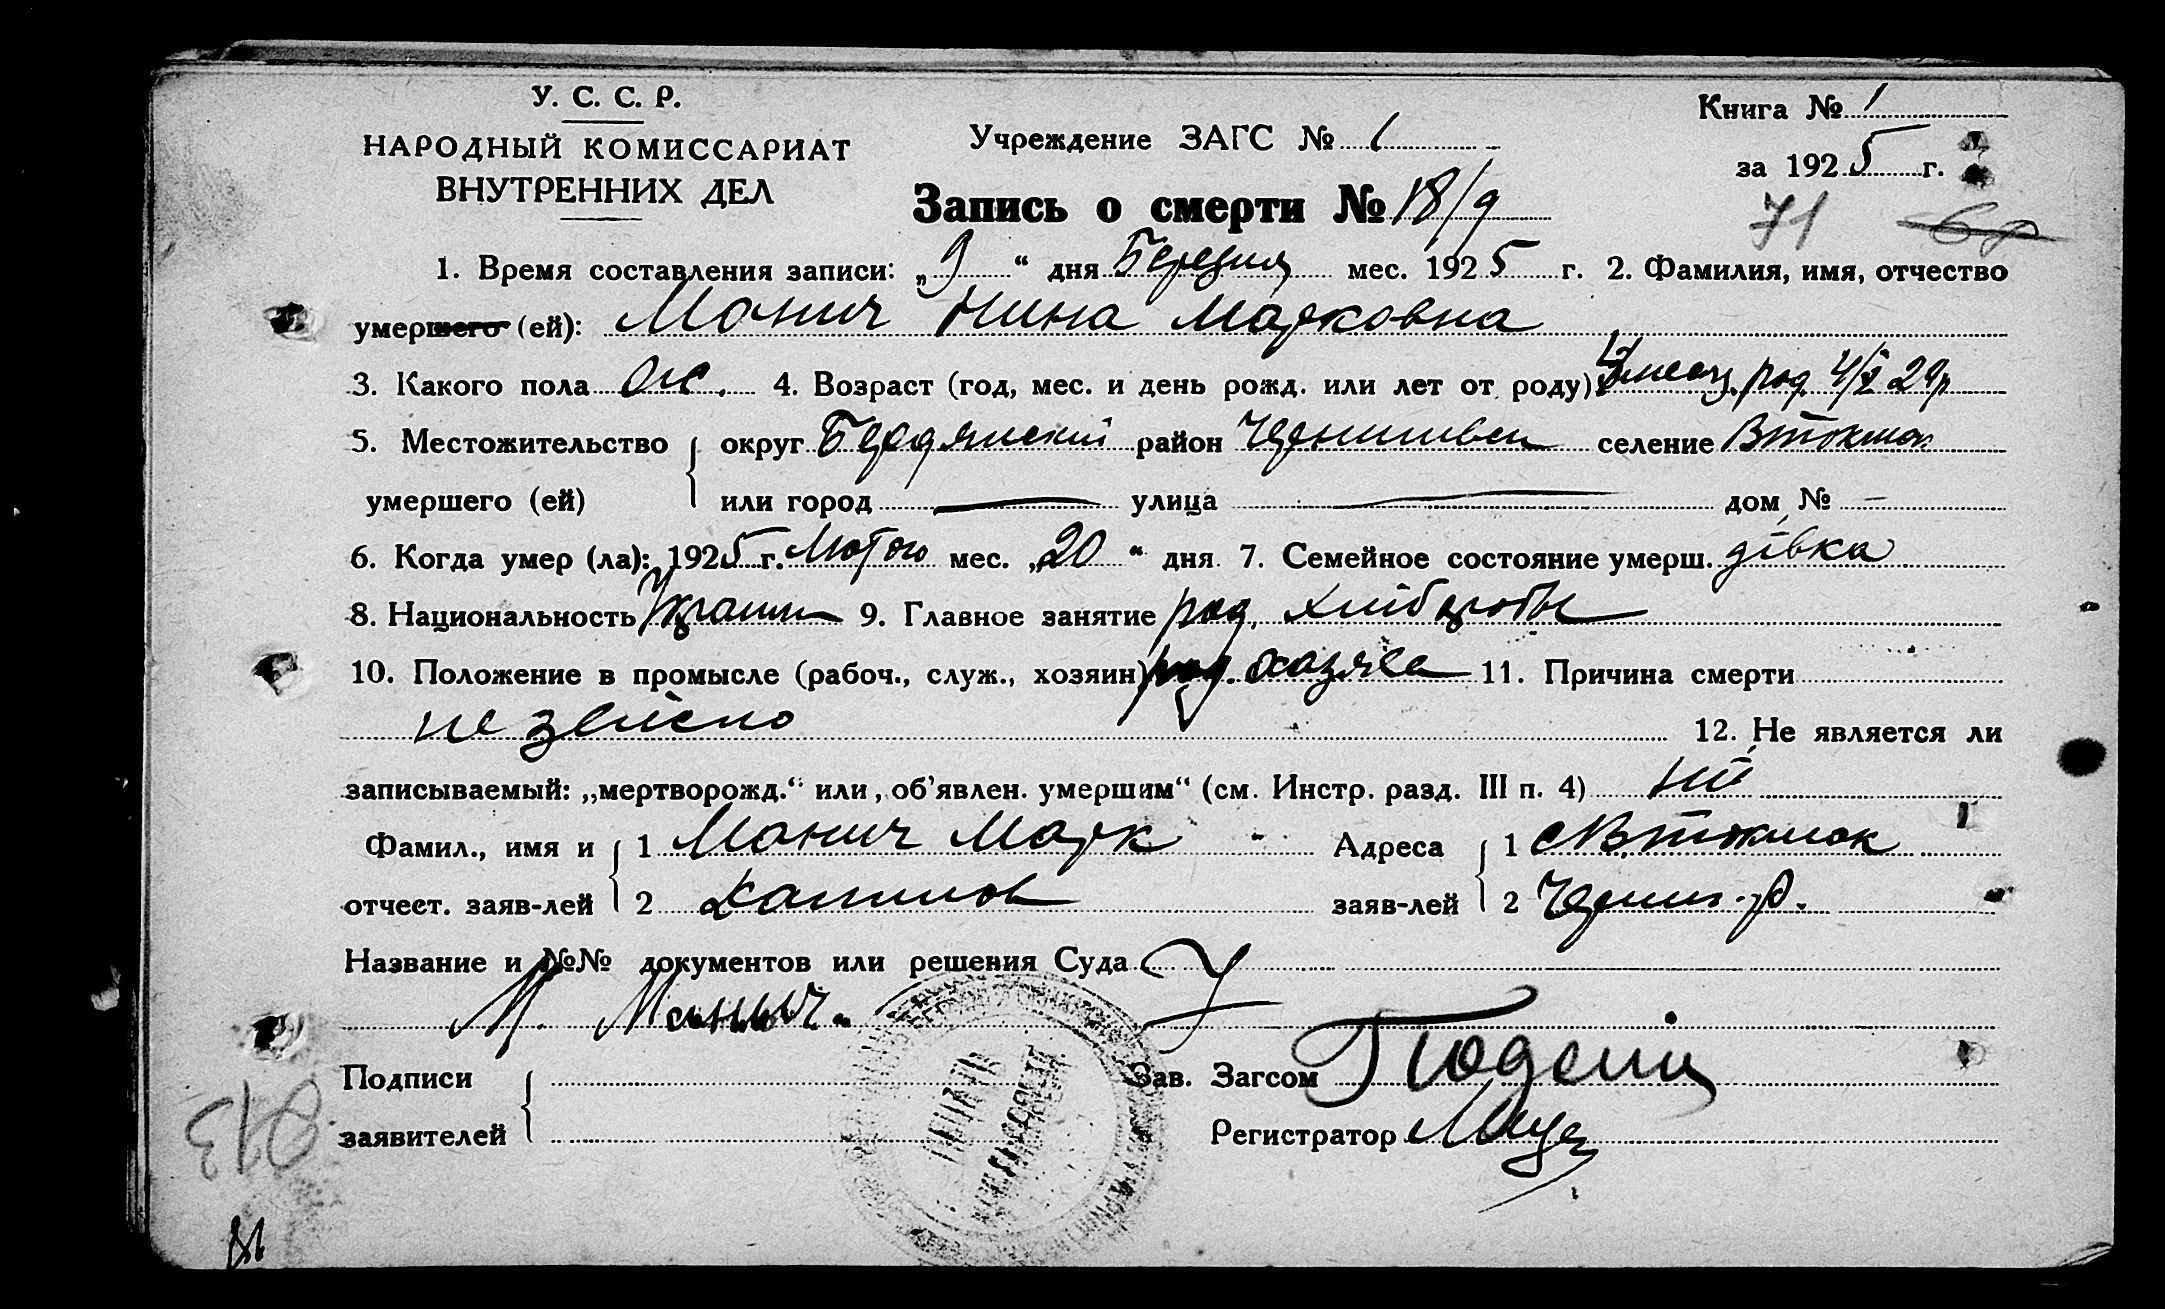 У. С. С. Р.
НАРОДНЫЙ КОМИССАРИАТ
ВНУТРЕННИХ ДЕЛ
Учреждение ЗАГС № 1
Книга № 1
за 1925 г.
Запись о смерти № 18/9
71
1. Время составления записи: „9“ дня Березня мес. 1925 г. 2. Фамилия, имя, отчество
умершего (ей): Монич Нина Марковна
3. Какого пола ж. 4. Возраст (год, мес. и день рожд. или лет от роду) месяц. род.
5. Местожительство округ Бердянский район селение Втокмак
умершего (ей) или город — улица — дом № —
6. Когда умер (ла): 1925 г. Лютого мес. „20“ дня. 7. Семейное состояние умерш. дівка
8. Национальность 9. Главное занятие род. хлібороб
10. Положение в промысле (рабоч., служ., хозяин) род. 11. Причина смерти
не звісно
12. Не является ли
записываемый: „мертворожд.“ или „об'явлен. умершим“ (см. Инстр. разд. III п. 4) ні
Фамил., имя и отчест. заяв-лей 1 Монич Марк Адреса заяв-лей 1 с Втокмак
2 2
Название и №№ документов или решения Суда
М. Монич.
Подписи
заявителей
Зав. Загсом
Регистратор
213